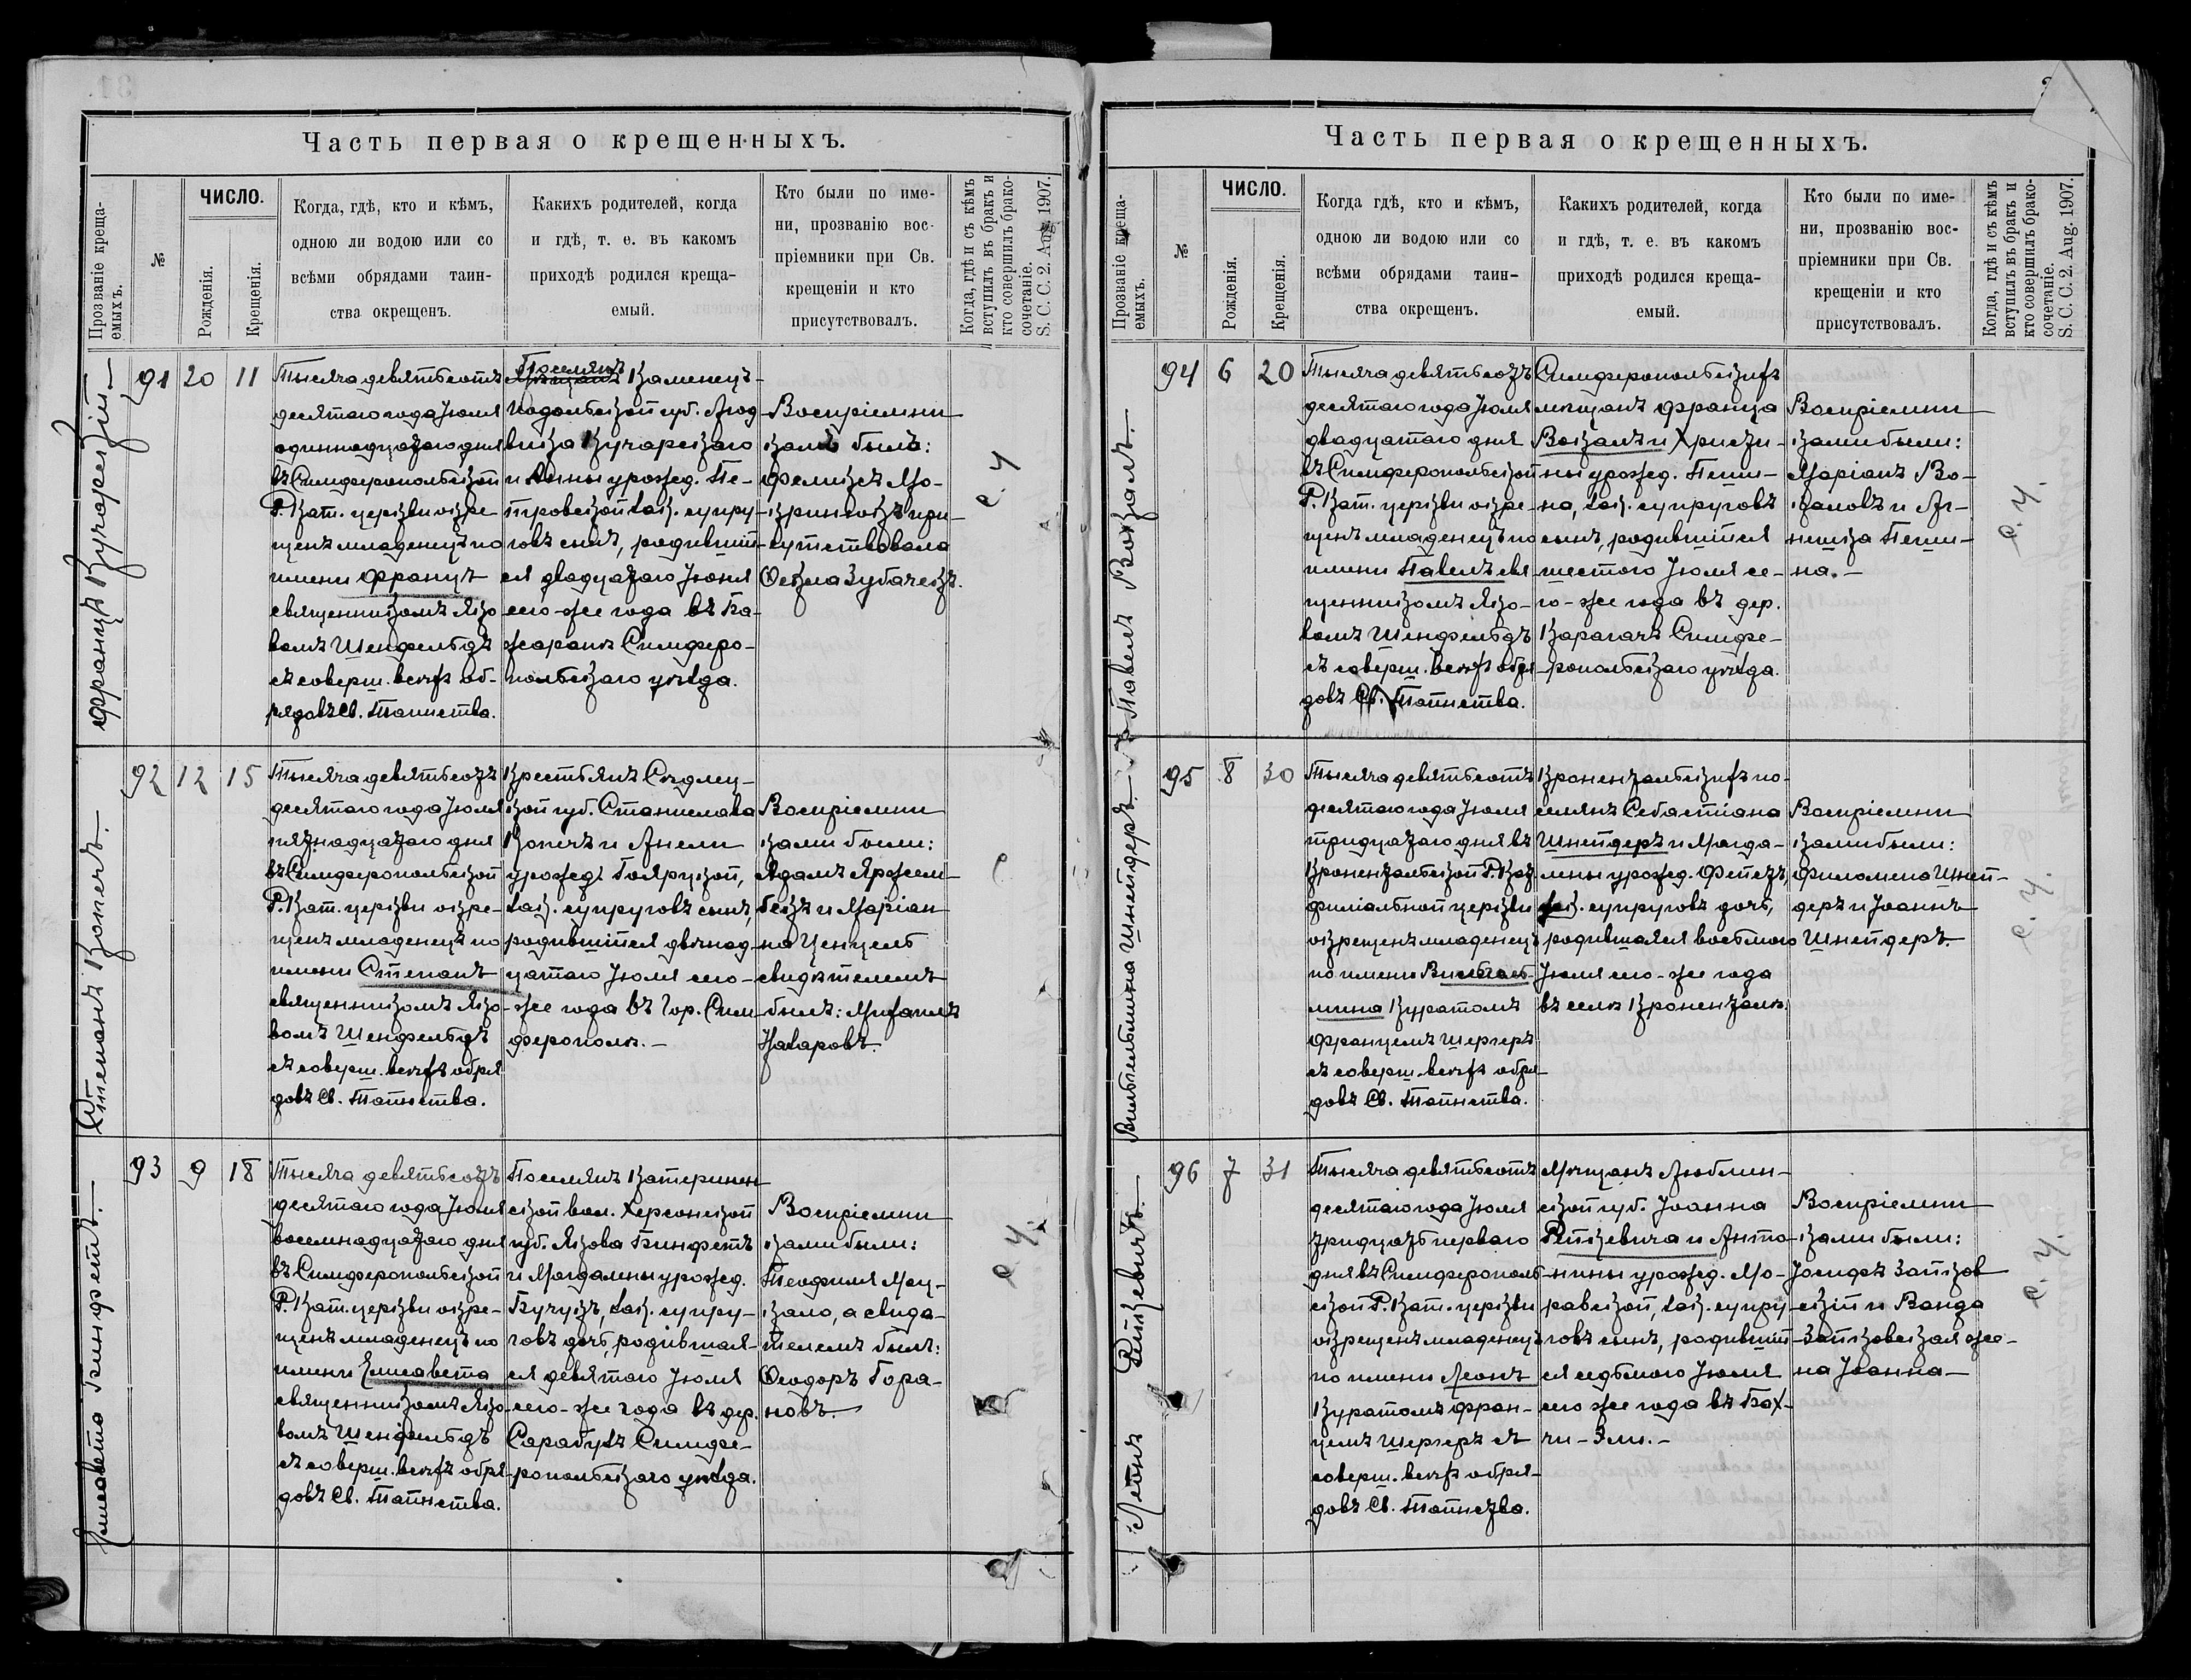 Часть первая о крещенныхъ.
Прозваніе креща-
емыхъ.
№
ЧИСЛО.
Рожденія.
Крещенія.
Когда, гдѣ, кто и кѣмъ,
одною ли водою или со
всѣми обрядами таин-
ства окрещенъ.
Какихъ родителей, когда
и гдѣ, т. е. въ какомъ
приходѣ родился креща-
емый.
Кто были по име-
ни, прозванію вос-
пріемники при Св.
крещеніи и кто
присутствовалъ.
Когда, гдѣ и съ кѣмъ
вступилъ въ бракъ и
кто совершилъ брако-
сочетаніе.
S. C. C. 2. Aug. 1907.
Францъ Кучарскій
91
20
11
Тысяча девятьсотъ
десятаго года Іюля
одиннадцатаго дня
въ Симферопольской
Р. Кат. церкви окре-
щенъ младенецъ по
имени Францъ
священникомъ Яко-
вомъ Шенфельдъ
съ соверш. всѣхъ об-
рядовъ Св. Таинства.
Поселянъ
Каменецъ-
Подольской губ. Люд
вика Кучарскаго
и Анны урожд. Пе-
тровской, зак. супру-
говъ сынъ, родившій-
ся двадцатаго Іюня
сего-же года въ Ба-
жаранѣ Симферо-
польскаго уѣзда.
Воспріемни
камъ былъ:
Феликсъ Мо-
при-
сутствовала
Ѳекла Зубачекъ.
с. ч
Степанъ Копецъ.
92
12
15
Тысяча девятьсотъ
десятаго года Іюля
пятнадцатаго дня
въ Симферопольской
Р. Кат. церкви окре-
щенъ младенецъ по
имени Степанъ
священникомъ Яко-
вомъ Шенфельдъ
съ соверш. всѣхъ обря
довъ Св. Таинства.
Крестьянъ Сѣдлец-
кой губ. Станислава
Копецъ и Анели
урожд. Боярукой,
зак. супруговъ сынъ,
родившійся двѣнад-
цатаго Іюля сего-
же года въ гор. Сим-
ферополѣ.-
Воспріемни
ками были:
Адамъ Яржем-
бекъ и Маріан
на Ценцель
свидѣтелемъ
былъ: Михаилъ
Назаровъ.
с
Елисавета Бинфетъ.
93
9
18
Тысяча девятьсотъ
десятаго года Іюля
восемнадцатаго дня
въ Симферопольской
Р. Кат. церкви окре-
щенъ младенецъ по
имени Елисавета
священникомъ Яко-
вомъ Шенфельдъ
съ соверш. всѣхъ обря-
довъ Св. Таинства.
Поселянъ Катеринен
ской вол. Херсонской
губ. Якова Бинфетъ
и Магдалины урожд.
зак. супру-
говъ дочь, родившая-
ся девятаго Іюля
сего-же года въ дер.
Сарабузъ Симфе-
ропольскаго уѣзда.
Воспріемни
ками были:
Теофиля Мац-
кало, а свидѣ-
телемъ былъ:
Ѳеодоръ Гора-
новъ.
с. ч.
Часть первая о крещенныхъ.
Прозваніе креща-
емыхъ.
№
ЧИСЛО.
Рожденія.
Крещенія.
Когда гдѣ, кто и кѣмъ,
одною ли водою или со
всѣми обрядами таин-
ства окрещенъ.
Какихъ родителей, когда
и гдѣ, т. е. въ какомъ
приходѣ родился креща-
емый.
Кто были по име-
ни, прозванію вос-
пріемники при Св.
крещеніи и кто
присутствовалъ.
Когда, гдѣ и съ кѣмъ
вступилъ въ бракъ и
кто совершилъ брако-
сочетаніе.
S. C. C. 2. Aug. 1907.
Павелъ Вокалъ.
94
6
20
Тысяча девятьсотъ
десятаго года Іюля
двадцатаго дня
въ Симферопольской
Р. Кат. церкви окре-
щенъ младенецъ по
имени Павелъ свя-
щенникомъ Яко-
вомъ Шенфельдъ
съ соверш. всѣхъ обря-
довъ Св. Таинства.
Симферопольскихъ
мѣщанъ Франца
Вокалъ и Христи-
ны урожд. Пеши-
на, зак. супруговъ
сынъ, родившійся
шестого Іюля се-
го-же года въ дер.
Карагачъ Симфе-
ропольскаго уѣзда.
Воспріемни
ками были:
Маріанъ Во-
каловъ и Аг-
нешка Пеши-
на.-
с. ч.
Вильгельмина Шнейдеръ.
95
8
30
Тысяча девятьсотъ
десятаго года Іюля
тридцатаго дня въ
Кроненталъской Р. Кат
филіальной церкви
окрещенъ младенецъ
по имени Вильгель-
мина Куратомъ
Францемъ Шергеръ
съ соверш. всѣхъ обря-
довъ Св. Таинства.
Кронентальскихъ по-
селянъ Себастіана
Шнейдеръ и Магда-
лины урожд. Фейтъ,
зак. супруговъ дочь,
родившаяся восьмого
Іюля сего-же года
въ селѣ Кроненталѣ.
Воспріемни
ками были:
Филомена Шней-
деръ и Іоаннъ
Шнейдеръ.
с. ч.
Леонъ Рейкевичъ.
96
7
31
Тысяча девятьсотъ
десятаго года Іюля
тридцать перваго
дня въ Симферополь-
ской Р. Кат. церкви
окрещенъ младенецъ
по имени Леонъ
Куратомъ Фран-
цемъ Шергеръ съ
соверш. всѣхъ обря-
довъ Св. Таинства.
Мѣщанъ Люблин-
ской губ. Іоанна
Рейкевича и Анто-
нины урожд. Мо-
равской, зак. супру-
говъ сынъ, родившій-
ся седьмого Іюля
сего же года въ Бах-
чи-Эли.-
Воспріемни
ками были:
Іосифъ Зайков
скій и Ванда
Зайковская же-
на Іоанна-
с. ч.